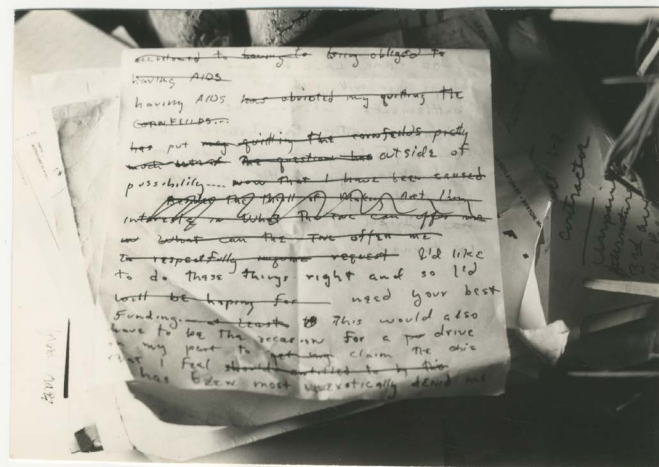 accustomed to having to being obliged to
having AIDS
having AIDS has obviated my quitting the
CORNFIELDS...
has put my quitting the cornfields pretty
much out of the question has outside of
possibility.... now that I have been caused
Besides the thrill of making Art
interests in What The can offer me
in What can the offer me
to respectfully request I'd like
to do these things right and so I'd
will be hoping for need your best
Funding. at least This would also
have to be the occasion for a drive
my part to get my claim the
that I feel should entitled to by
has been most unexotically denied me
contractor